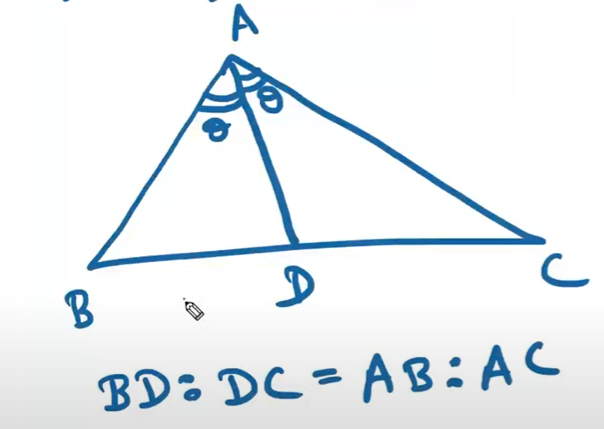 A
θ
θ
B
D
C
BD:DC = AB:AC